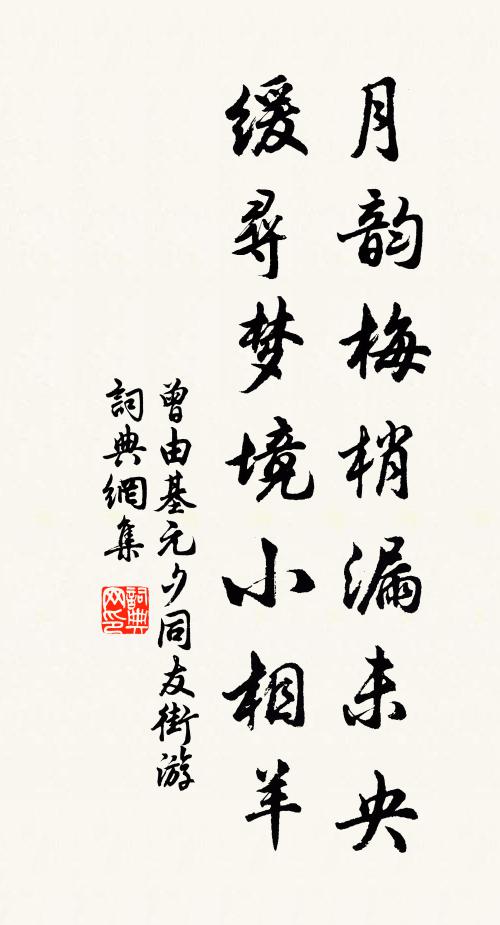 月韵梅梢漏未央
缓寻梦境小相羊
曾由基元夕同友街游
詞典網集
詞典
网印